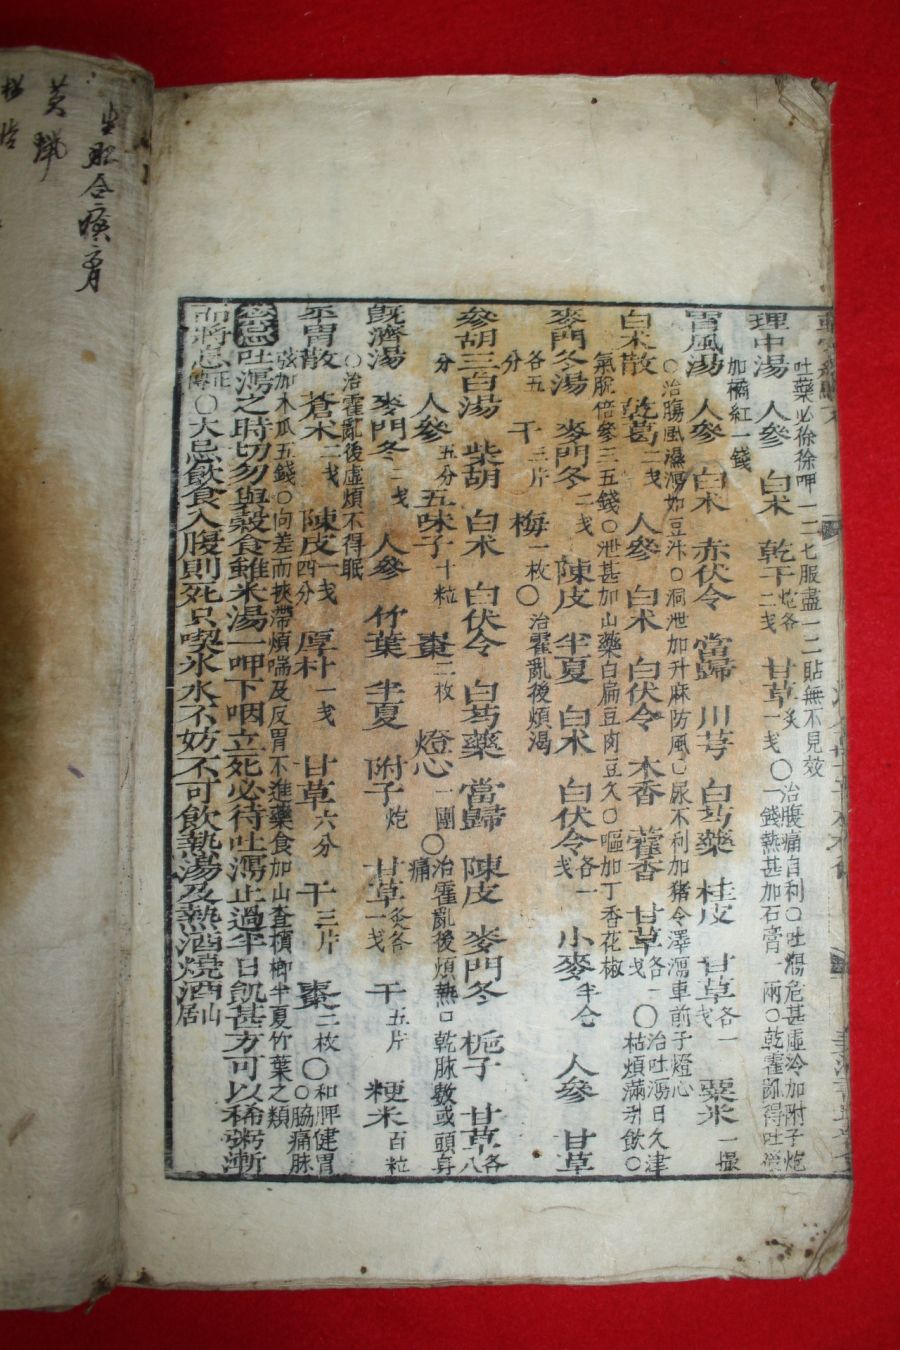 吐藥必徐徐呷一二七服盡一二貼無不見效
理中湯 人參 白朮 乾干炮各二戈 甘草炙一戈〇治腹痛自利〇吐瀉危甚虛冷加附子炮一錢熱甚加石膏一兩〇乾霍亂得吐
加橘紅一錢
胃風湯 人參 白朮 赤伏令 當歸 川芎 白芍藥 桂皮 甘草各一戈 粟米一撮
〇治腸風濕瀉如豆汁〇洞泄加升麻防風〇尿不利加猪令澤瀉車前子燈心
白朮散 乾葛二戈 人參 白朮 白伏令 木香 藿香 甘草各一戈〇治吐瀉日久津枯煩滿引飲〇
氣脫倍參三五錢〇泄甚加山藥白扁豆肉豆久〇嘔加丁香花椒
麥門冬湯 麥門冬二戈 陳皮 半夏 白朮 白伏令各一戈 小麥半合 人參 甘草
各五分 干三片 梅一枚〇治霍亂後煩渴
參胡三白湯 柴胡 白朮 白伏令 白芍藥 當歸 陳皮 麥門冬 梔子 甘草各八
分 人參五分 五味子十粒 棗二枚 燈心一團〇治霍亂後煩熱口乾脉數或頭身痛
旣濟湯 麥門冬二戈 人參 竹葉 半夏 附子炮 甘草炙各一戈 干五片 粳米百粒
〇治霍亂後虛煩不得眠
平胃散 蒼朮二戈 陳皮一戈四分 厚朴一戈 甘草六分 干三片 棗二枚〇和脾健胃〇脇痛脉
弦加木瓜五錢〇向差而挾滯煩喘及反胃不進藥食加山査檳榔半夏竹葉之類
禁忌吐瀉之時切勿與穀食雖米湯一呷下咽立死必待吐瀉止過半日飢甚方可以稀粥漸
而將息正傳〇大忌飮食入腹則死只喫氷水不妨不可飮熱湯及熱酒燒酒山居
黃蠟